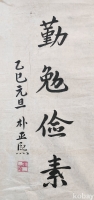 勤勉俭素
乙巳元旦 朴亚